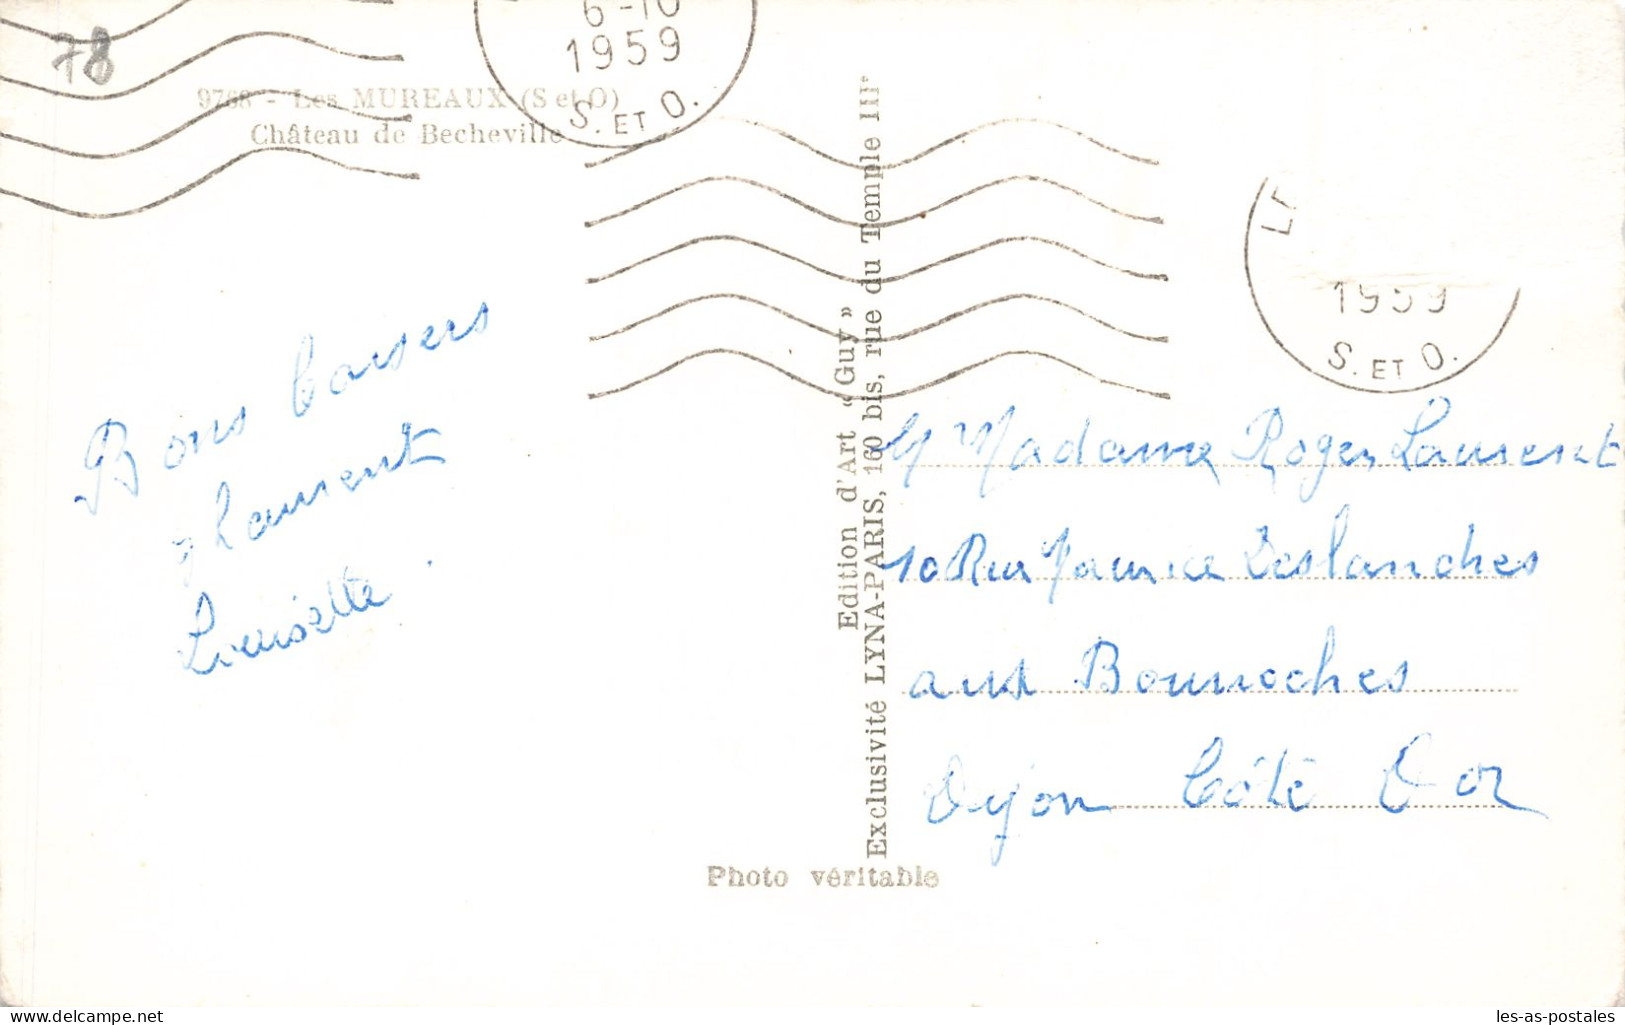 78
6-10
1959
S. ET O.
9768 - Les MUREAUX (S et O)
Château de Becheville
1959
S. ET O.
Bons baisers
Laurent
Louisette.
Edition d'Art « Guy »
Exclusivité LYNA-PARIS, 160 bis, rue du Temple IIIe
Photo véritable
M Madame Roger Laurent
10 Rue Maurice Deslanches
aux Bourroches
Dijon Côté D or
delcampe.net
les-as-postales